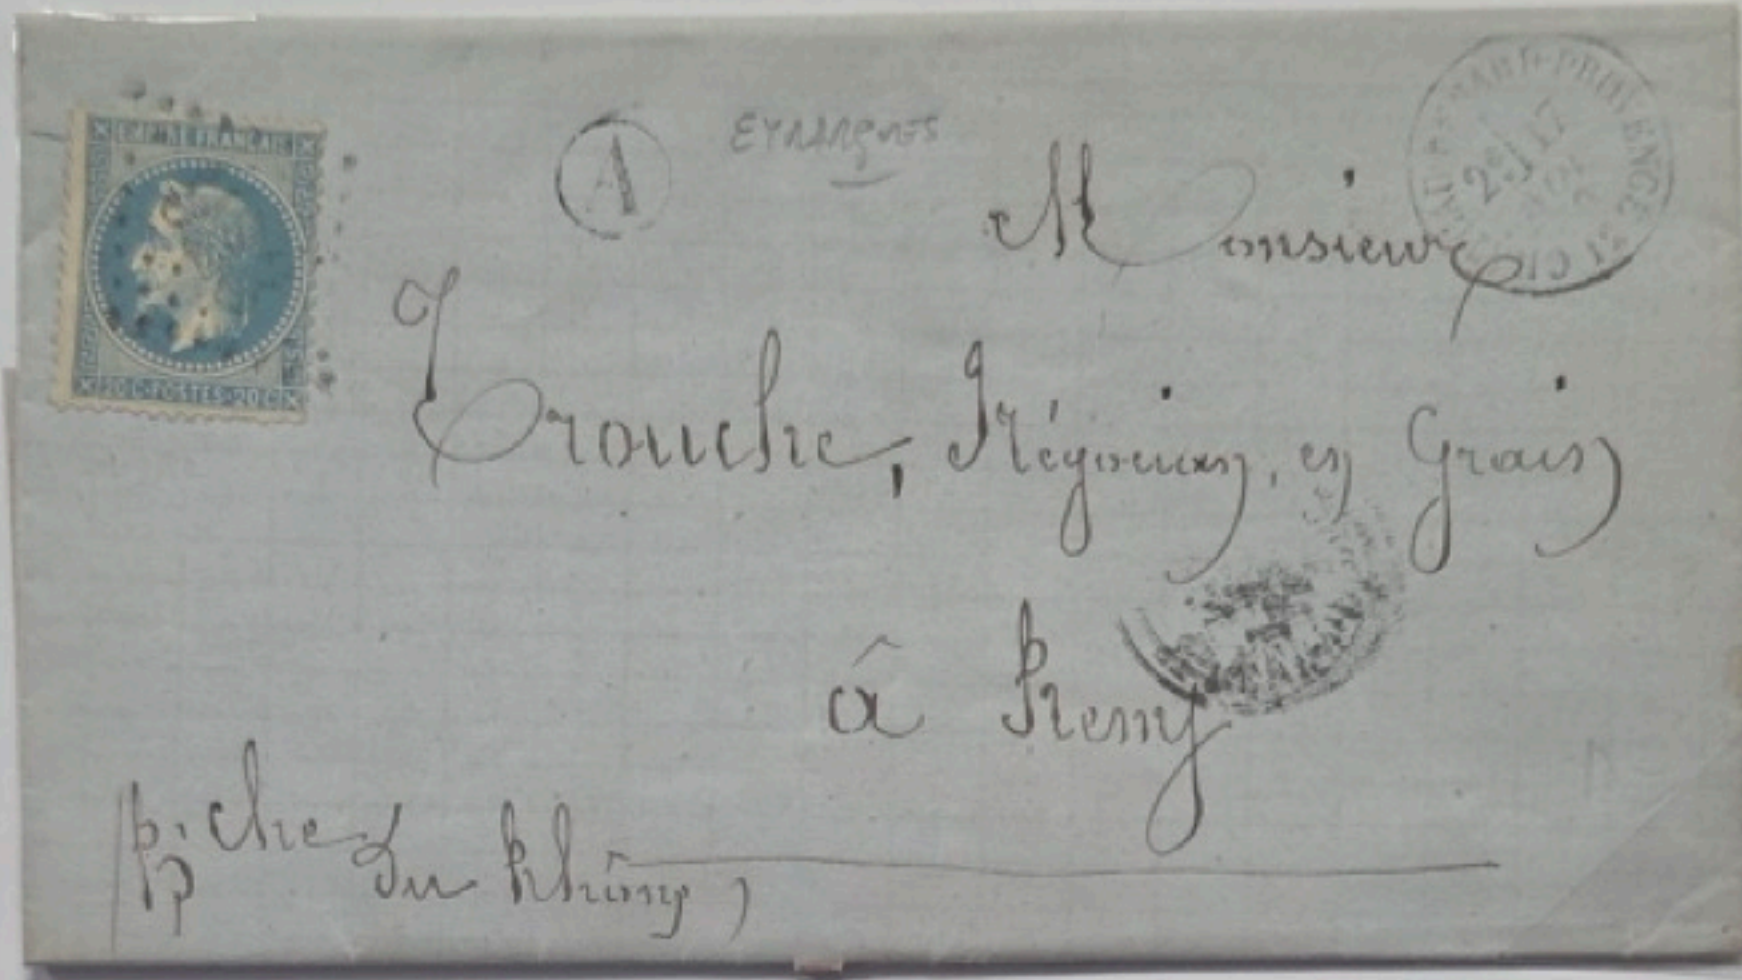 EMPIRE FRANCAIS
20 C·POSTES·20 C
A
EYRARGUES
2e/ 17
Monsieur
Trouche, Négociant, en Grain
à Remy
p. che
du Rhône,